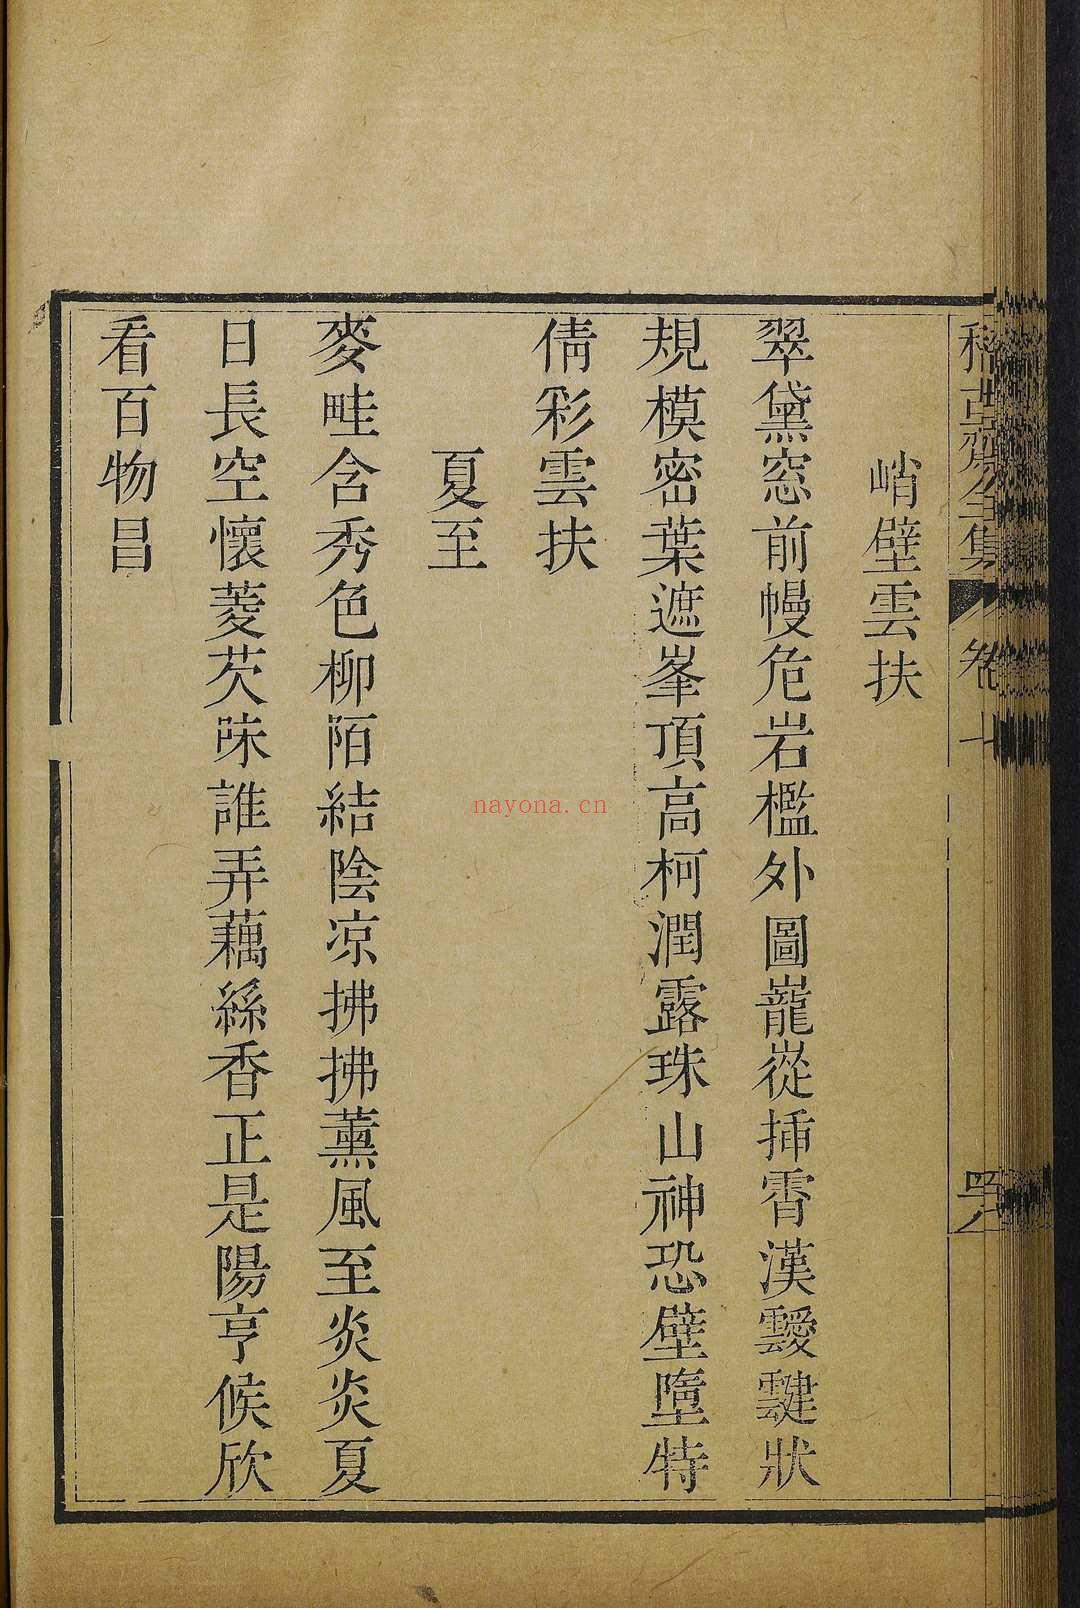 峭壁雲扶
翠黛窓前幔危岩檻外圖巃嵷揷霄漢靉靆狀
規模密葉遮峯頂高柯潤露珠山神恐壁墮特
倩彩雲扶
夏至
麥畦含秀色柳陌結陰凉拂拂薰風至炎炎夏
日長空懷菱芡味誰弄藕絲香正是陽亨候欣
看百物昌
稽古齋全集
卷七
nayona.cn